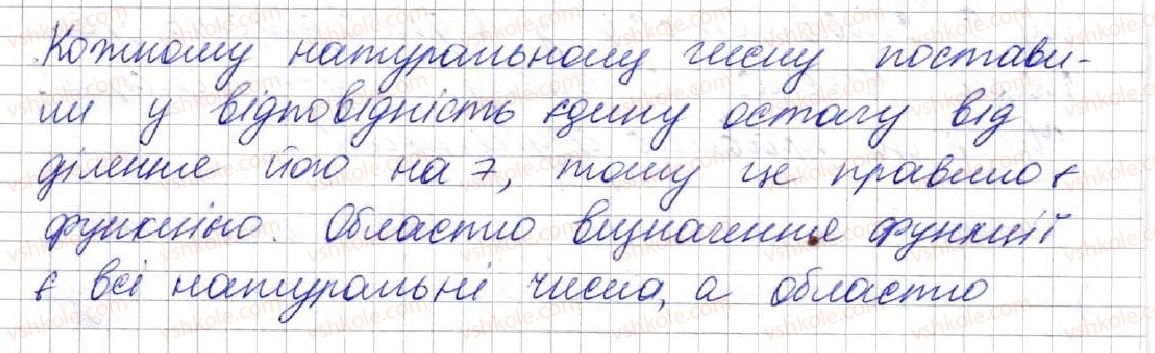 Кожному натуральному числу постави-
ли у відповідність єдину остачу від
ділення його на 7, тому це правило є
функцією. Областю визначення функції
є всі натуральні числа, а областю